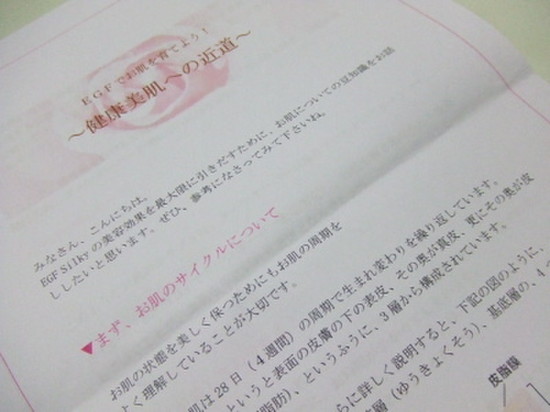 EGFでお肌を育てよう!
～健康美肌への近道～
みなさん、こんにちは。
EGF Silkyの美容効果を最大限に引きだすために、お肌についての豆知識をお話
ししたいと思います。ぜひ、参考になさってみて下さいね。
▼まず、お肌のサイクルについて
お肌の状態を美しく保つためにもお肌の周期を
よく理解していることが大切です。
肌は28日(4週間)の周期で生まれ変わりを繰り返しています。
というと表面の皮膚の下の表皮、その奥が真皮、更にその奥が皮
脂肪)、というふうに、3層から構成されています。
らに詳しく説明すると、下記の図のように、
層(ゆうきょくそう)、基底層の、4つ
皮脂膜